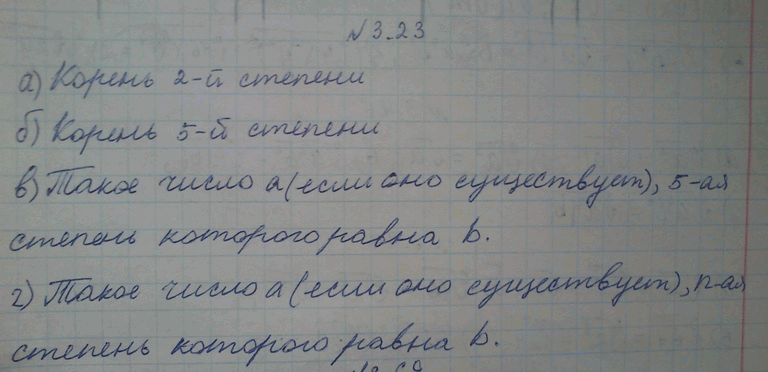 №3.23
а) Корень 2-й степени
б) Корень 5-й степени
в) Такое число а (если оно существует), 5-ая
степень которого равна b.
г) Такое число а (если оно существует), n-ая
степень которого равна b.